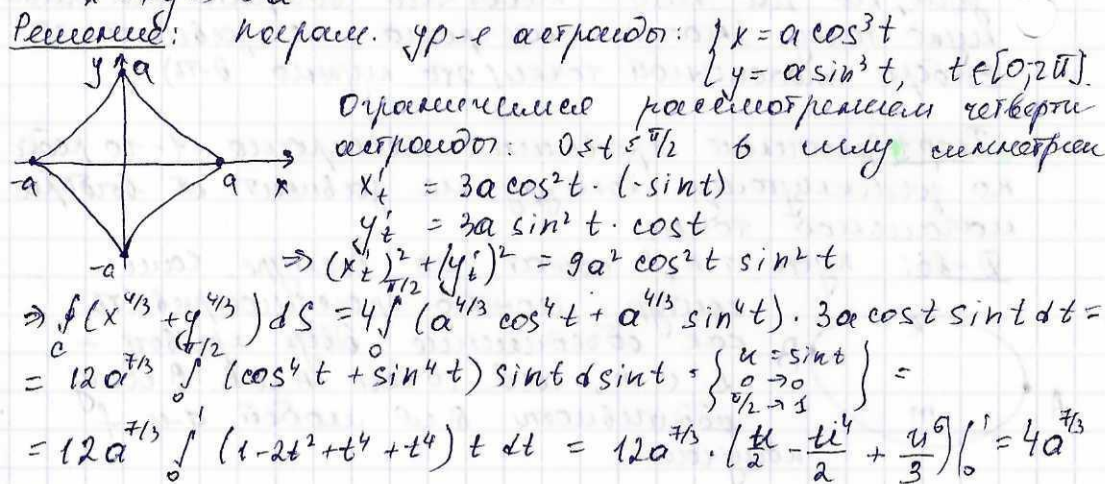 Решение: парам. ур-е астроиды: { x = a cos³ t
y = a sin³ t, t ∈ [0, 2π].
y a
-a a x
-a
Ограничимся рассмотрением четверти
астроиды: 0 ≤ t ≤ π/2 в силу симметрии
x'ₜ = 3a cos² t · (-sin t)
y'ₜ = 3a sin² t · cos t
⇒ (x'ₜ)² + (y'ₜ)² = 9a² cos² t sin² t
⇒ ∮_C (x^{4/3} + y^{4/3}) dS = 4 ∫_0^{π/2} (a^{4/3} cos⁴ t + a^{4/3} sin⁴ t) · 3a cos t sin t dt =
= 12 a^{7/3} ∫_0^{π/2} (cos⁴ t + sin⁴ t) sin t d sin t = { u = sin t
0 → 0
π/2 → 1 } =
= 12 a^{7/3} ∫_0^1 (1 - 2t² + t⁴ + t⁴) t dt = 12 a^{7/3} · (u/2 - u⁴/2 + u⁶/3) |_0^1 = 4a^{7/3}